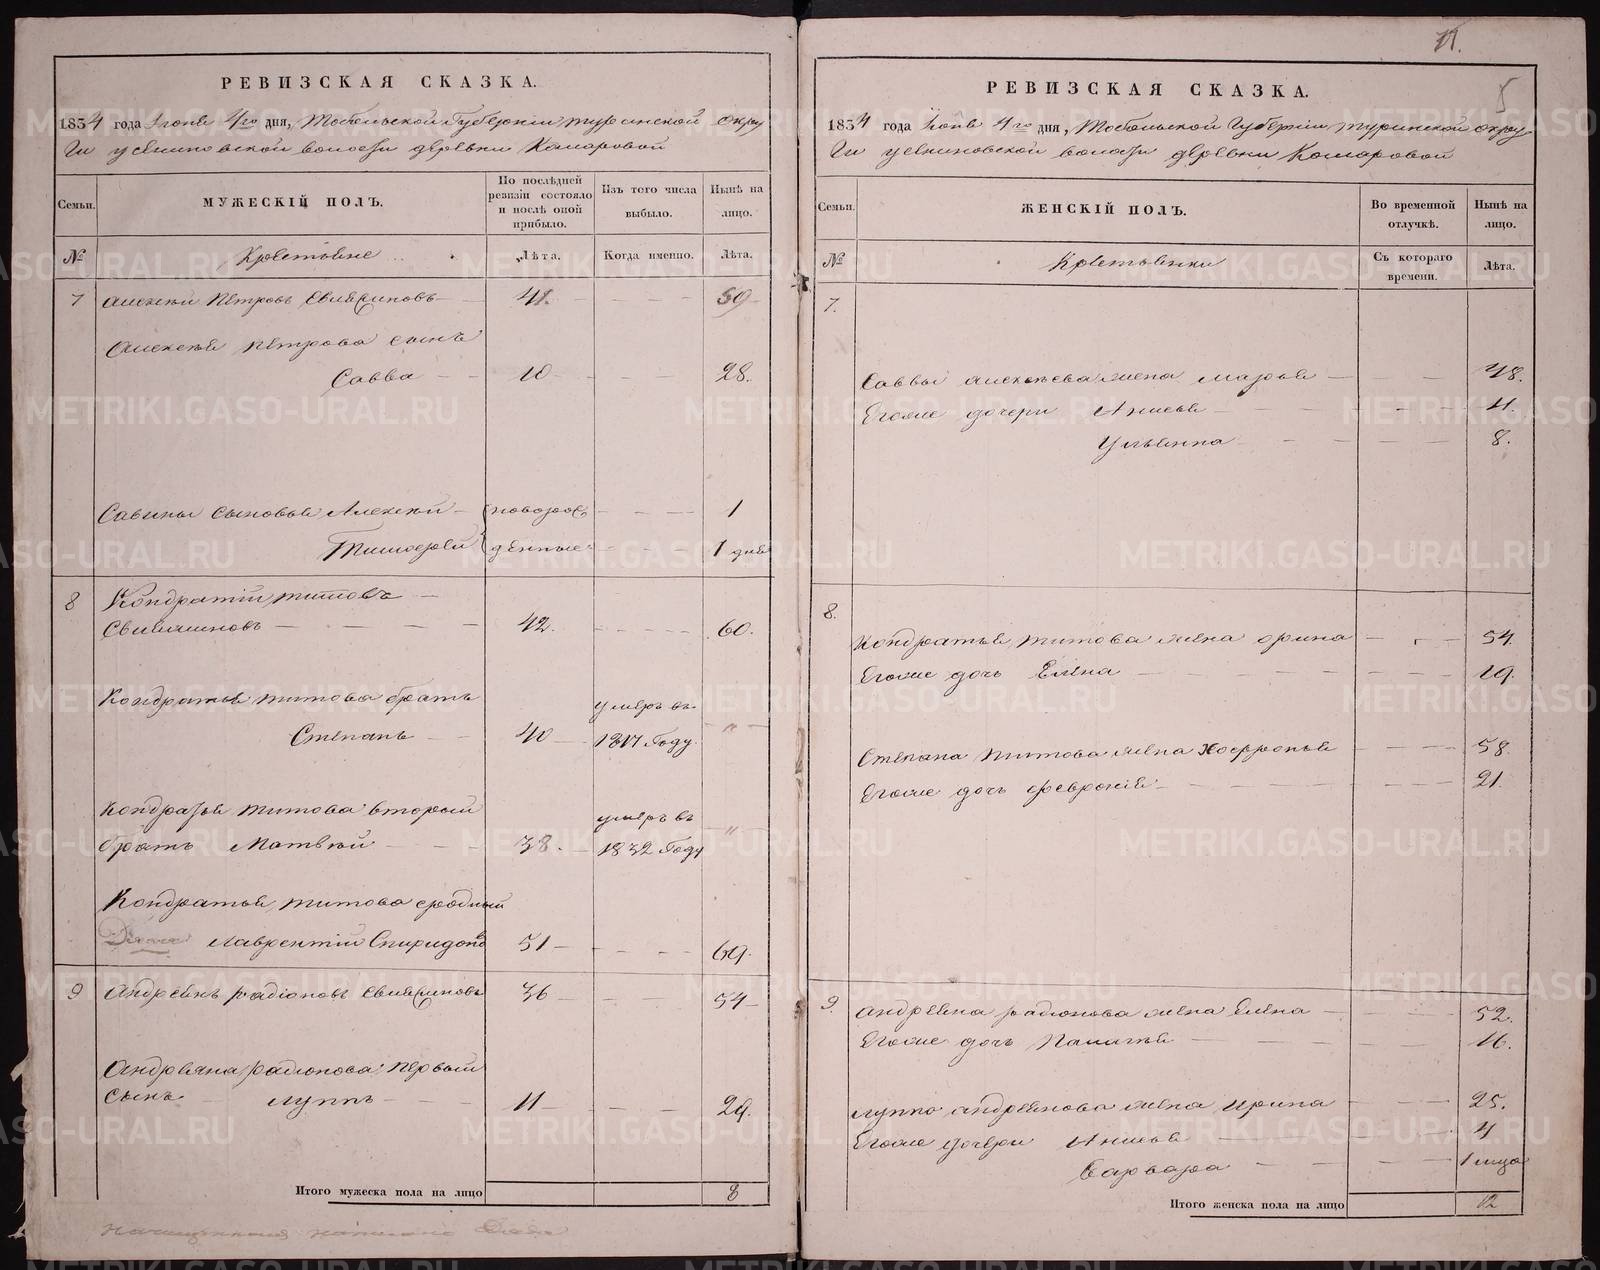 РЕВИЗСКАЯ СКАЗКА.
1834 года Іюня 4го дня, Тобольской Губерніи туринской окру
Ги волости деревни Комаровой
Семьи.
МУЖЕСКІЙ ПОЛЪ.
По послѣдней ревизіи состояло и послѣ оной прибыло.
Изъ того числа выбыло.
Нынѣ на лицо.
№
Крестьяне
Лѣта.
Когда именно.
Лѣта.
7 Алексѣй Петровъ 41. 59
Алексѣя петрова сынъ
Савва 10 28.
Савины сыновья Алексѣй новорож 1
Тимофей денные 1 дня
8 Кондратій титовъ
42. 60.
Кондратья титова братъ умеръ въ
Степанъ 40 1817 Году. "
Кондратья титова второй умеръ въ
братъ Матвѣй 38. 1832 Году "
Кондратья титова сродный
Лаврентій Спиридоновъ 51 69.
9 радіоновъ 36 54
Андреяна радионова первый
сынъ луппъ 11 29.
Итого мужеска пола на лицо 8
написано дядя
11.
5
РЕВИЗСКАЯ СКАЗКА.
1834 года Іюня 4го дня, Тобольской Губерніи туринской окру
Ги волости деревни Комаровой
Семьи.
ЖЕНСКІЙ ПОЛЪ.
Во временной отлучкѣ.
Нынѣ на лицо.
№
Крестьянки
Съ котораго времени.
Лѣта.
7.
Саввы алексѣева жена марья 48.
Егоже дочери Анисья 11.
Ульянна 8.
8.
Кондратья титова жена орина 54.
Егоже дочь Елена 19.
Степана титова жена 58.
Егоже дочь февронія 21.
9. андреяна радионова жена Елена 52.
Егоже дочь 16.
луппа андреянова жена ирина 25.
Егоже дочери Анисья 4
Варвара 1
Итого женска пола на лицо 12
METRIKI.GASO-URAL.RU